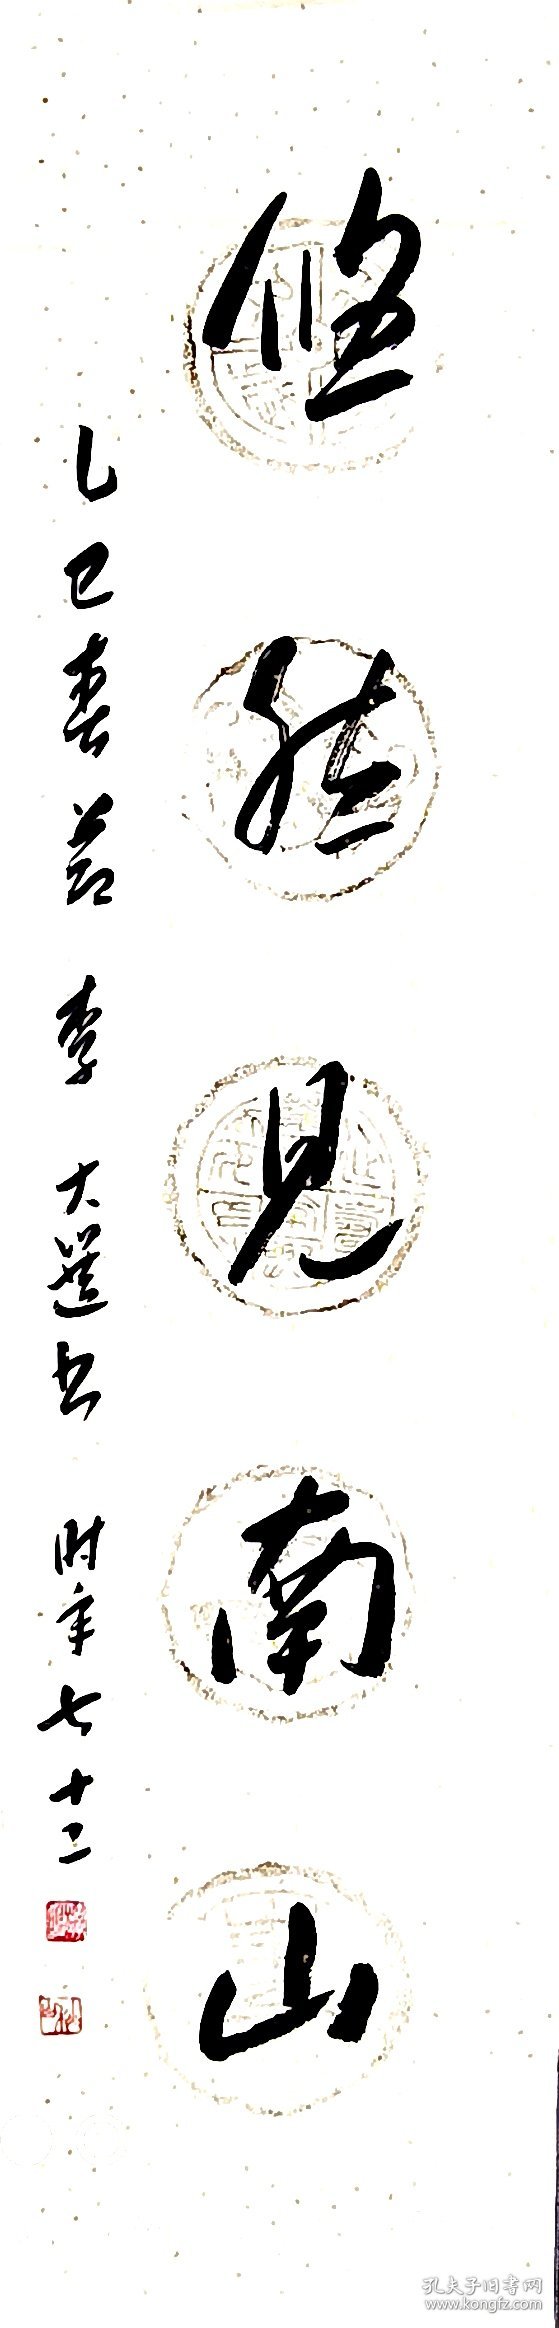 悠然見南山
乙巳春节 李大選书 时年七十二
孔夫子旧书网
www.kongfz.com